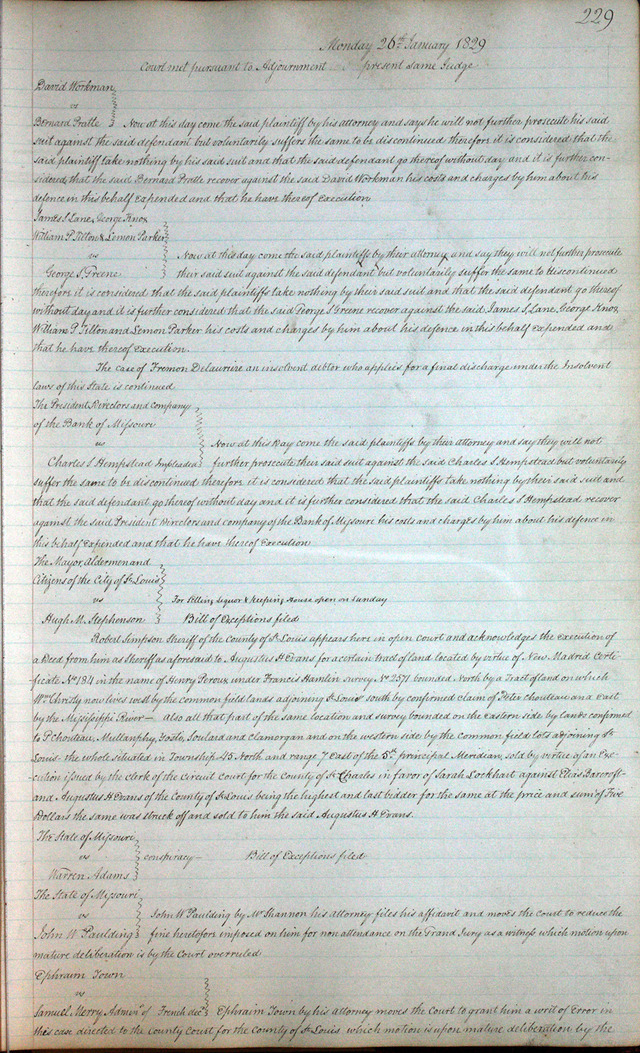 229
Monday 26th January 1829
Court met pursuant to Adjournment present same Judge
David Workman
vs
Bernard Pratte Now at this day come the said plaintiff by his attorney and says he will not further prosecute his said
suit against the said defendant but voluntarily suffers the same to be discontinued therefore it is considered that the
said plaintiff take nothing by his said suit and that the said defendant go thereof without day and it is further con-
sidered that the said Bernard Pratte recover against the said David Workman his costs and charges by him about his
defence in this behalf expended and that he have thereof Execution
James S Lane, George Knox
William P. Tilton & Lemon Parker
vs Now at this day come the said plaintiffs by their attorney and say they will not further prosecute
George S Greene their said suit against the said defendant but voluntarily suffer the same to discontinued
therefore it is considered that the said plaintiffs take nothing by their said suit and that the said defendant go thereof
without day and it is further considered that the said George S Greene recover against the said James S Lane, George Knox,
William P Tilton and Lemon Parker his costs and charges by him about his defence in this behalf Expended and
that he have thereof Execution.
The case of Fremon Delauriere an insolvent debtor who applies for a final discharge under the Insolvent
laws of this State is continued
The President Directors and Company
of the Bank of Missouri
vs Now at this Day come the said plaintiffs by their attorney and say they will not
Charles S Hempstead Impleaded further prosecute their said suit against the said Charles S Hempstead but voluntarily
suffer the same to be discontinued therefore it is considered that the said plaintiffs take nothing by their said suit and
that the said defendant go thereof without day and it is further considered that the said Charles S Hempstead recover
against the said President Directors and company of the Bank of Missouri his costs and charges by him about his defence in
this behalf Expended and that he have thereof Execution
The Mayor, Aldermen and
Citizens of the City of St Louis
vs For selling Liquor & keeping House open on Sunday
Hugh M. Stephenson Bill of Exceptions filed
Robert Simpson Sheriff of the County of St Louis appears here in open Court and acknowledges the execution of
a Deed from him as Sheriff as aforesaid to Augustus H Evans for a certain tract of land located by virtue of New Madrid Certi-
ficate No 184 in the name of Henry Peroux under Francis Hamlin survey No 2571 bounded North by a Tract of land on which
Wm Christy now lives west by the common field lands adjoining St Louis south by confirmed claim of Peter Chouteau and East
by the Mississippi River — Also all that part of the same location and survey bounded on the Eastern side by lands confirmed
to P Chouteau, Mullanphy, Yosto, Soulard and Clamorgan and on the western side by the Common field lots adjoining St
Louis. the whole situated in Township 45 North and range 7 East of the 5th principal Meridian, sold by virtue of an Exe-
cution issued by the clerk of the Circuit Court for the County of St Charles in favor of Sarah Lockhart against Elias Barcroft
and Augustus H Evans of the County of St Louis being the highest and last bidder for the same at the price and sum of Five
Dollars the same was struck off and sold to him the said Augustus H Evans.
The State of Missouri
vs conspiracy — Bill of Exceptions filed
Warren Adams
The State of Missouri
vs John W Paulding by Mr Shannon his attorney files his affidavit and moves the Court to reduce the
John W Paulding fine heretofore imposed on him for non attendance on the Grand Jury as a witness which motion upon
mature deliberation is by the Court overruled
Ephraim Town
vs
Samuel Merry Admr of French decd Ephraim Town by his attorney moves the Court to grant him a writ of Error in
this case directed to the County Court for the County of St Louis which motion is upon mature deliberation by the